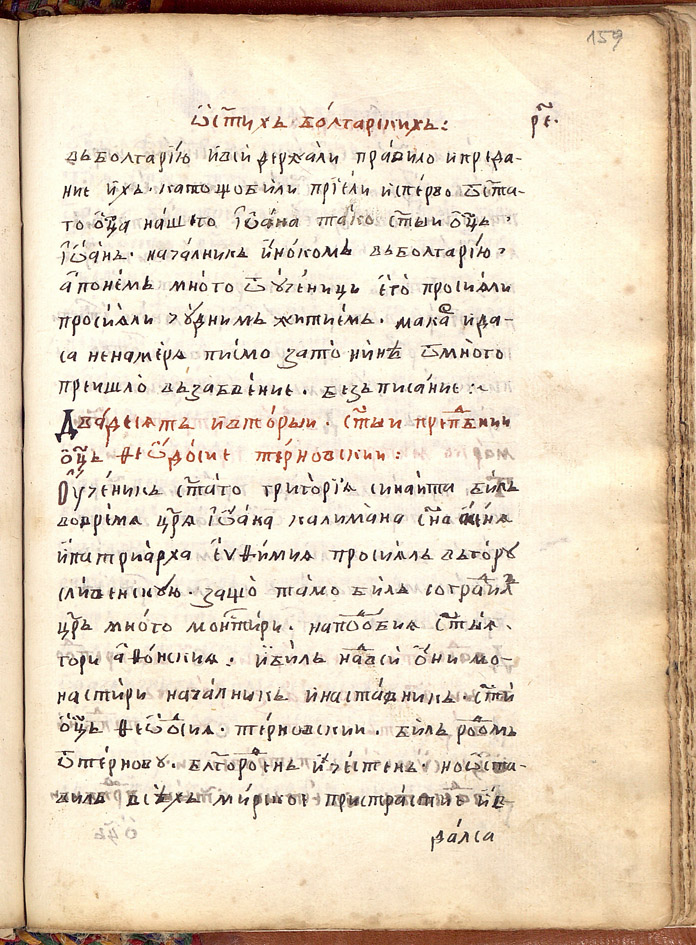 159
Ѡ ст҃ихь болгарскихь: рє҃.
вьболгарїю ивси держали правило ипреда-
ние ихь. катощобили прїели исперво ѿст҃а-
го ѡц҃а нашего їѡана тако ст҃ыи ѡц҃ь.
їѡань. началникь инокомь вьболгарїю,
апонемь много ѿученици его просияли
просияли чуднимь житиемь. мака и да-
са ненамеря писмо зато нинѣ ѿмного
преишло вьзабвение. безьписание:~
Двадесять ивторыи. ст҃ыи преп҃бнии
ѡц҃ь ѳеѡдосие терновскии:
Оученикь ст҃аго григорїя синаита биль
вовремя цр҃я їѡана калимана сн҃а асеня
ипатриарха еvѳимия просияль вьгору
сливенскую. защо тамо биль сограⷣиля
цр҃ь много монⷭ҇тири. наподобия ст҃ыя.
гори аѳонския. ибиль наⷣвси ѡни мо-
настири началникь инаставникь. ст҃и
ѡц҃ь ѳеѡⷣсия. терновскии. биль роⷣомь
ѿтернову. бл҃городень ичестень. ноѡста-
виль всѣхь мирское пристрастие ив-
далса